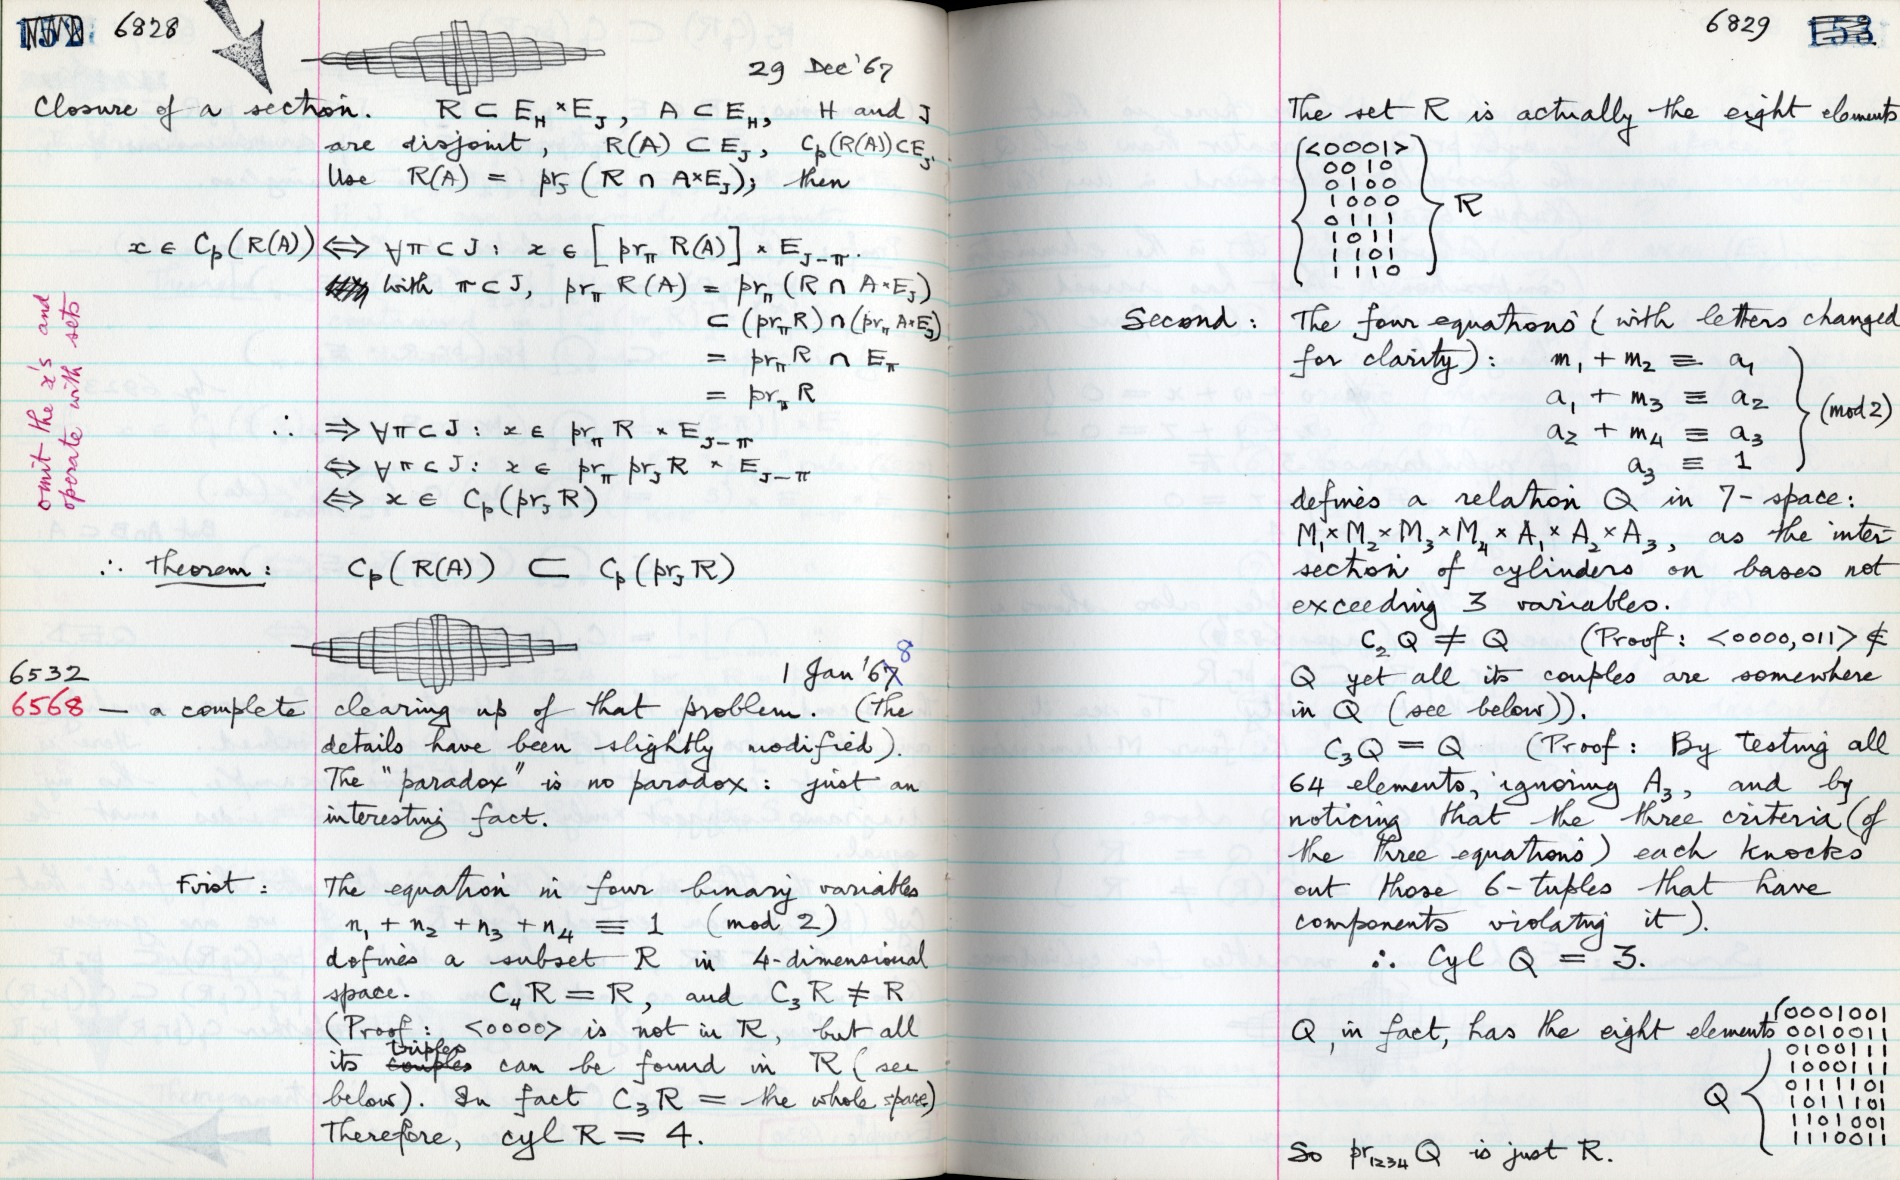 6828
29 Dec '67
Closure of a section. R ⊂ E_H × E_J, A ⊂ E_H, H and J
are disjoint, R(A) ⊂ E_J, C_p(R(A)) ⊂ E_J.
Use R(A) = pr_J (R ∩ A×E_J); then
x ∈ C_p(R(A)) ⇔ ∀π ⊂ J: x ∈ [pr_π R(A)] × E_{J-π}.
with π ⊂ J, pr_π R(A) = pr_π (R ∩ A×E_J)
⊂ (pr_π R) ∩ (pr_π A×E_J)
= pr_π R ∩ E_π
= pr_π R
∴ ⇒ ∀π ⊂ J: x ∈ pr_π R × E_{J-π}
⇔ ∀π ⊂ J: x ∈ pr_π pr_J R × E_{J-π}
⇔ x ∈ C_p(pr_J R)
omit the x's and
operate with sets
∴ theorem: C_p(R(A)) ⊂ C_p(pr_J R)
1 Jan '68
6532
6568 — a complete clearing up of that problem. (The
details have been slightly modified).
The "paradox" is no paradox: just an
interesting fact.
First: The equation in four binary variables
n₁ + n₂ + n₃ + n₄ ≡ 1 (mod 2)
defines a subset R in 4-dimensional
space. C₄R = R, and C₃R ≠ R
(Proof: <0000> is not in R, but all
its couples triples can be found in R (see
below). In fact C₃R = the whole space)
Therefore, cyl R = 4.
6829 153
The set R is actually the eight elements
<0001>
0010
0100
1000
0111
1011
1101
1110
R
Second: The four equations (with letters changed
for clarity): m₁ + m₂ ≡ a₁
a₁ + m₃ ≡ a₂
a₂ + m₄ ≡ a₃
a₃ ≡ 1
(mod 2)
defines a relation Q in 7-space:
M₁×M₂×M₃×M₄×A₁×A₂×A₃, as the inter-
section of cylinders on bases not
exceeding 3 variables.
C₂Q ≠ Q (Proof: <0000,011> ∉
Q yet all its couples are somewhere
in Q (see below)).
C₃Q = Q (Proof: By testing all
64 elements, ignoring A₃, and by
noticing that the three criteria (of
the three equations) each knocks
out those 6-tuples that have
components violating it).
∴ Cyl Q = 3.
Q, in fact, has the eight elements
0001001
0010011
0100111
1000111
0111101
1011101
1101001
1110011
Q
So pr₁₂₃₄Q is just R.